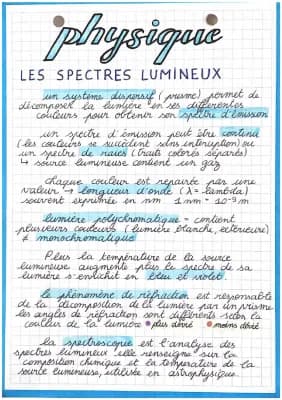 physique
LES SPECTRES LUMINEUX
un système dispersif (prisme) permet de
décomposer la lumière en ses différentes
couleurs pour obtenir son spectre d'émission
un spectre d'émission peut être continu
(les couleurs se succèdent sans interruption) ou
un spectre de raies (traits colorés séparés)
↳ source lumineuse contient un gaz
chaque couleur est repairé par une
valeur → longueur d'onde (λ = lambda)
souvent exprimée en nm 1 nm = 10⁻⁹ m
lumière polychromatique = contient
plusieurs couleurs (lumière blanche, extérieure)
≠ monochromatique
Plus la température de la source
lumineuse augmente plus le spectre de sa
lumière s'enrichit en bleu et violet
le phénomène de réfraction est responsable
de la décomposition de la lumière par un prisme
les angles de réfraction sont différents selon la
couleur de la lumière • plus dévié • moins dévié
la spectroscopie est l'analyse des
spectres lumineux elle renseigne sur la
composition chimique et la température de la
source lumineuse, utilisée en astrophysique.